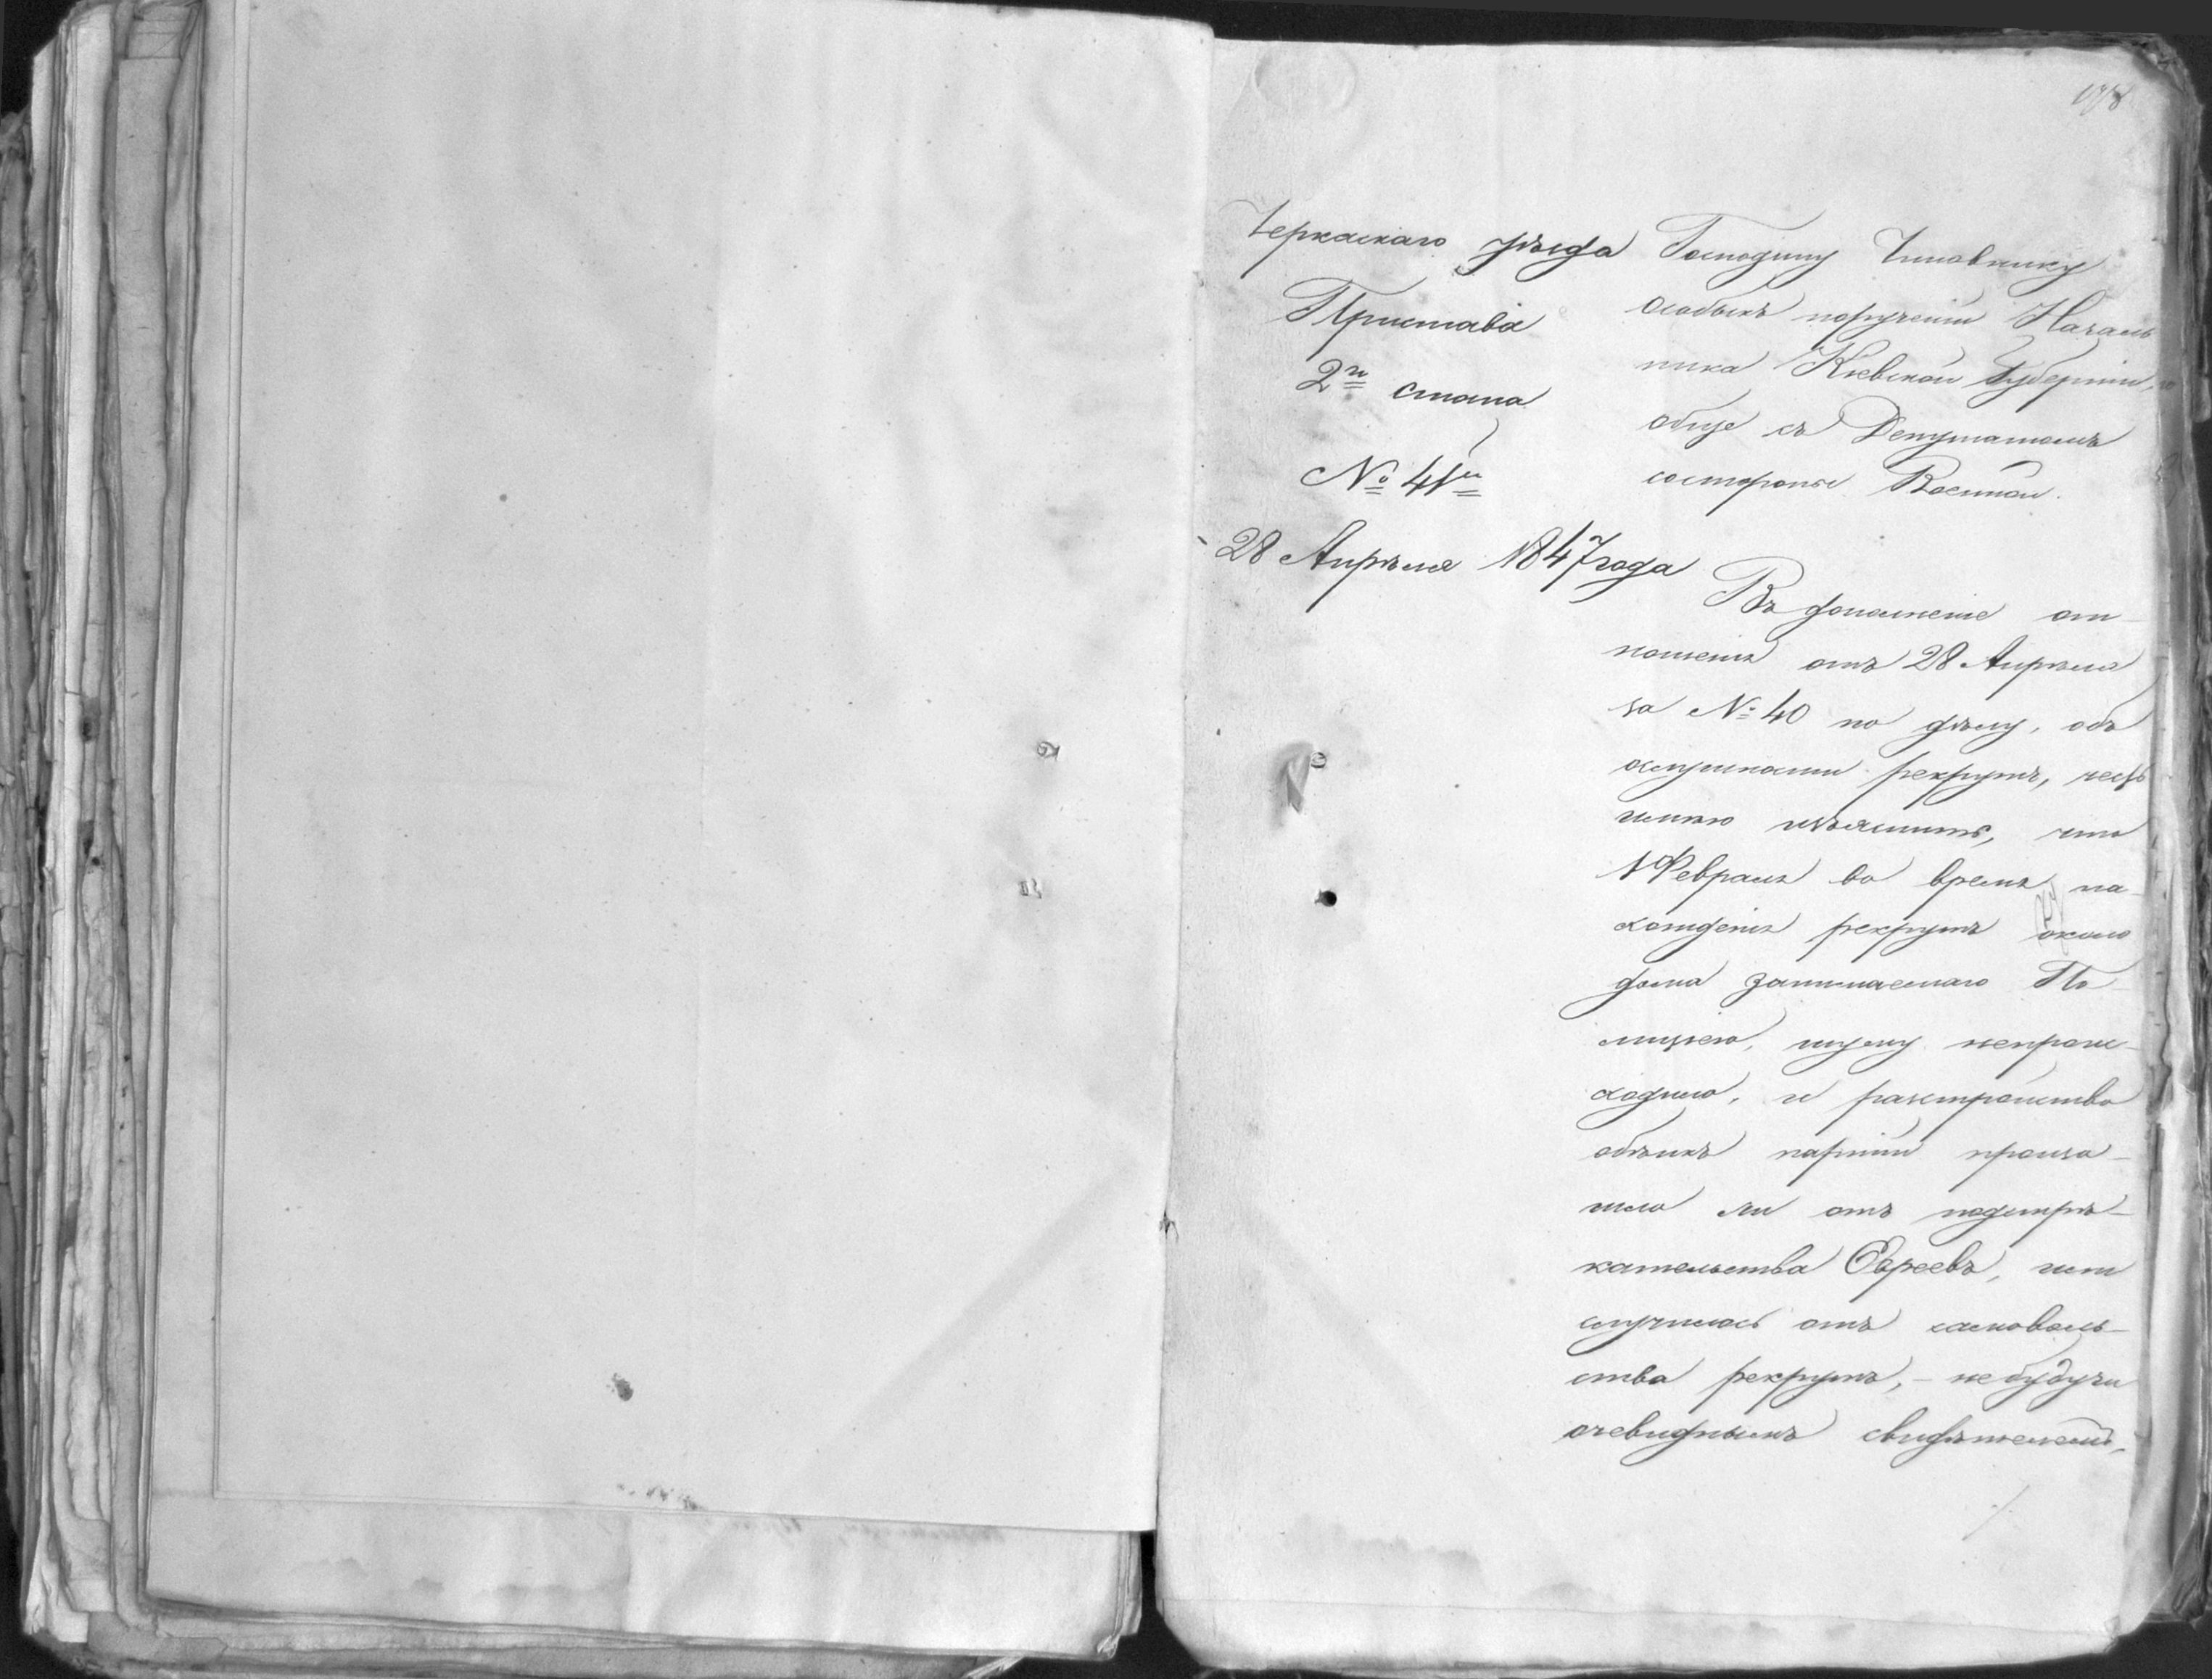 Черкаскаго уѣзда
Пристава
2го стана
№ 41й
28 Апрѣля 1847 года
Господину Чиновнику
особыхъ порученій Началь
ника Кіевской Губерніи,
обще съ Депутатомъ
состороны Военной.
Въ дополненіе от-
ношенія отъ 28 Апрѣля
за № 40 по дѣлу, объ
ослушаніи рекрутъ, честь
имѣю изъяснить, что
1 Февраля во время на-
хожденія рекрутъ около
дома занимаемаго По-
лиціею, шуму непроис-
ходило, и разстройство
обѣихъ партій произо-
шло ли отъ подстрѣ-
кательства Евреевъ, или
случилось отъ самоволь-
ства рекрутъ, - не будучи
очевиднымъ свидѣтелемъ,